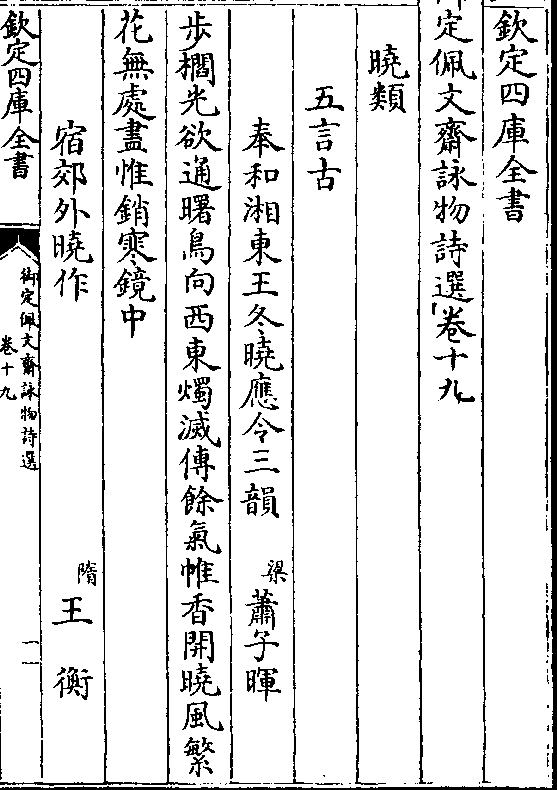 欽定四庫全書
御定佩文齋詠物詩選卷十九
曉類
五言古
奉和湘東王冬曉應令三韻 梁 蕭子暉
步櫩光欲通曙鳥向西東燭滅傳餘氣帷香開曉風繁
花無處盡惟銷寒鏡中
宿郊外曉作 隋 王衡
欽定四庫全書
御定佩文齋詠物詩選
卷十九
一